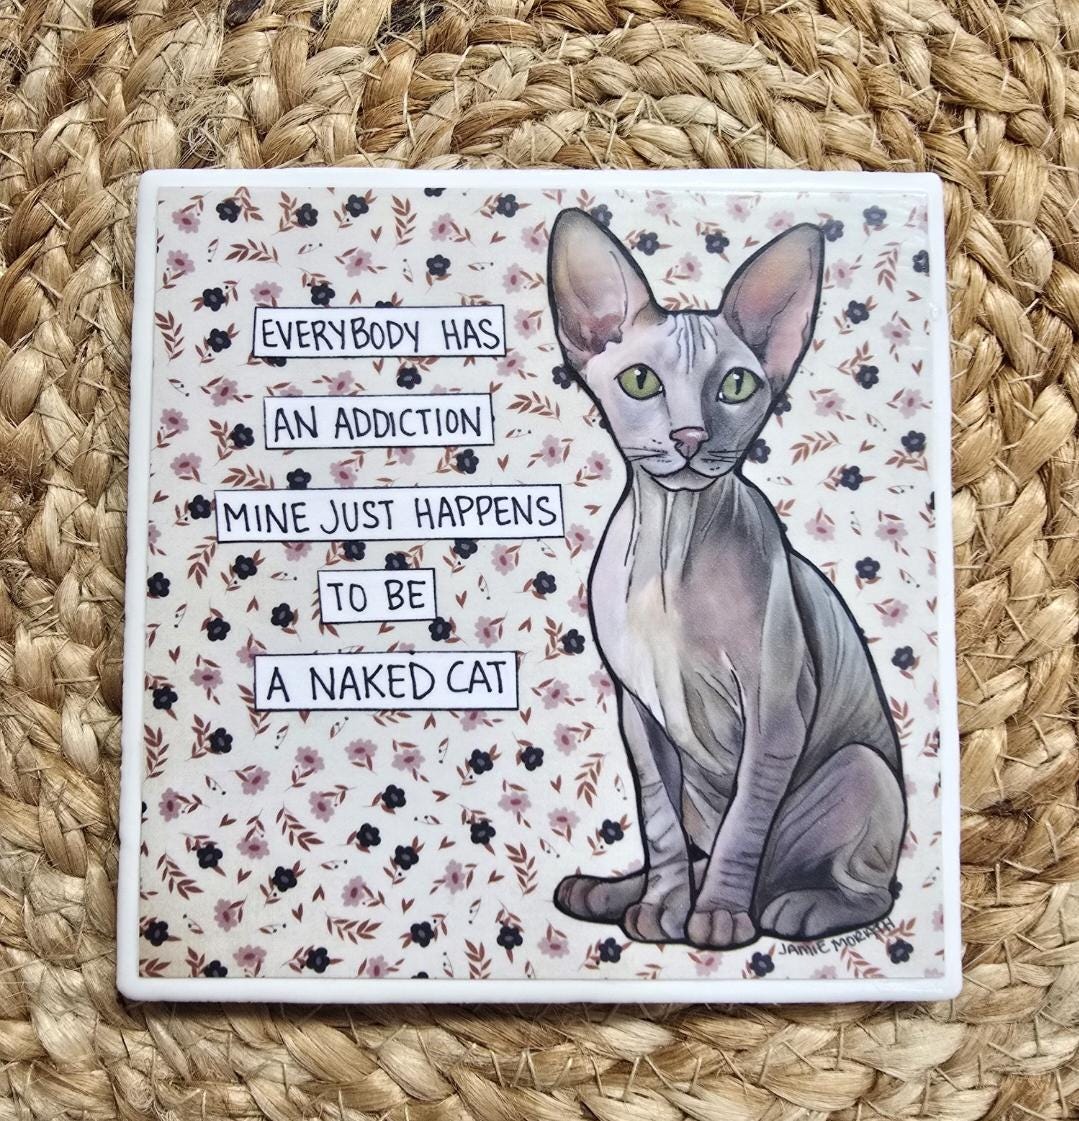 EVERYBODY HAS
AN ADDICTION
MINE JUST HAPPENS
TO BE
A NAKED CAT
JAMIE MORATH